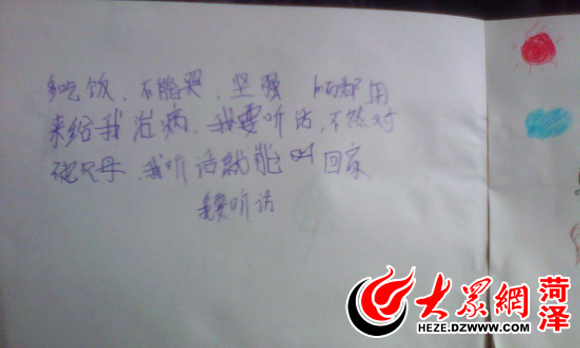 多吃饭、不能哭、坚强 都用
来给我治病、我要听话，不能对
父母、我听话就能 回家
我要听话
大众網 菏泽
HEZE.DZWWW.COM